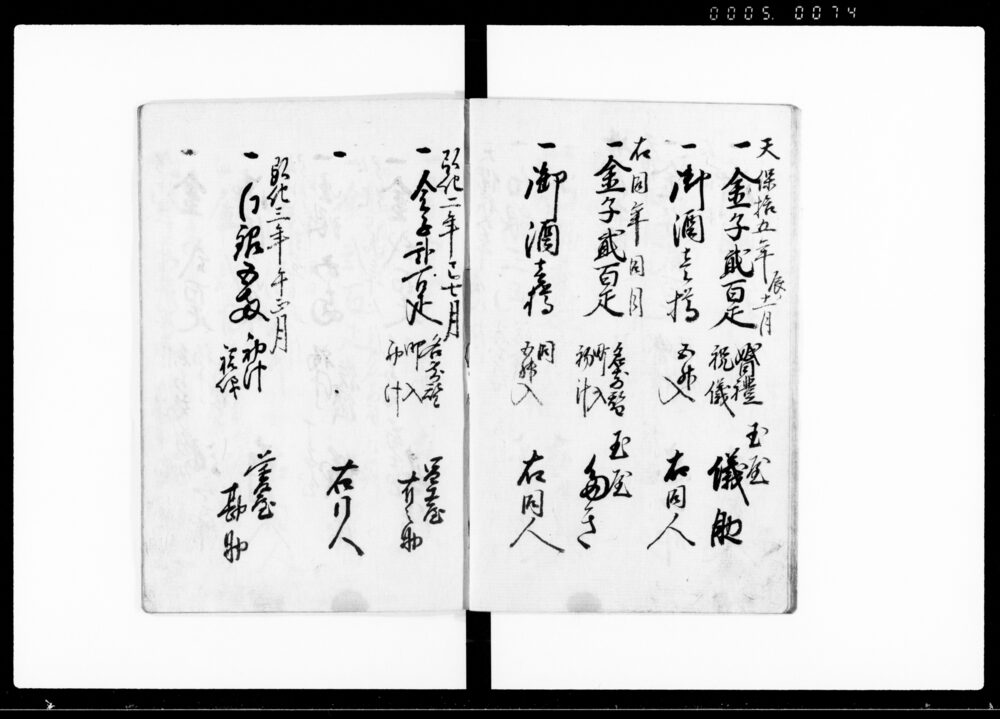 0005. 0074
天保拾五年辰十一月
一金子貳百疋 婚禮祝儀 玉屋儀助
一御酒壱樽 五升入 右同人
右同年同月
一金子貳百疋 名前替町入 玉屋
一御酒壱樽 同五升入 右同人
弘化二年巳七月
一金子弐百疋 名前替町入 助
一 右同人
弘化三年午正月
一白銀五両 祝儀 屋勘助
一